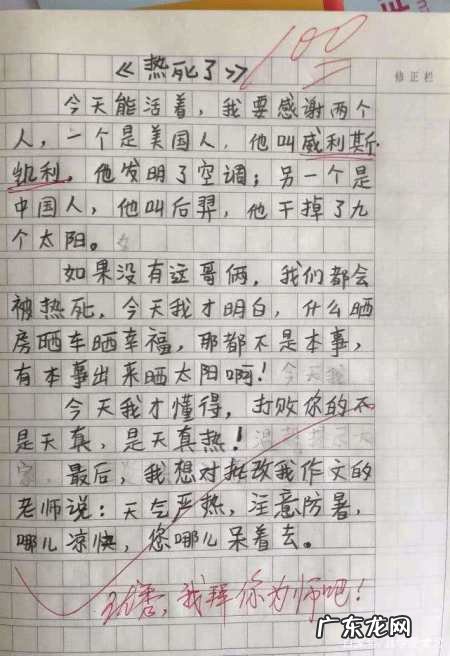 100
修正栏
《热死了》
今天能活着，我要感谢两个
人，一个是美国人，他叫威利斯·
凯利，他发明了空调；另一个是
中国人，他叫后羿，他干掉了九
个太阳。
如果没有这哥俩，我们都会
被热死，今天我才明白，什么晒
房晒车晒幸福，那都不是本事，
有本事出来晒太阳啊！今天我
今天我才懂得，打败你的不
是天真，是天真热！
最后，我想对批改我作文的
老师说：天气严热，注意防暑，
哪儿凉快，您哪儿呆着去。
我拜你为师吧！
广东龙网